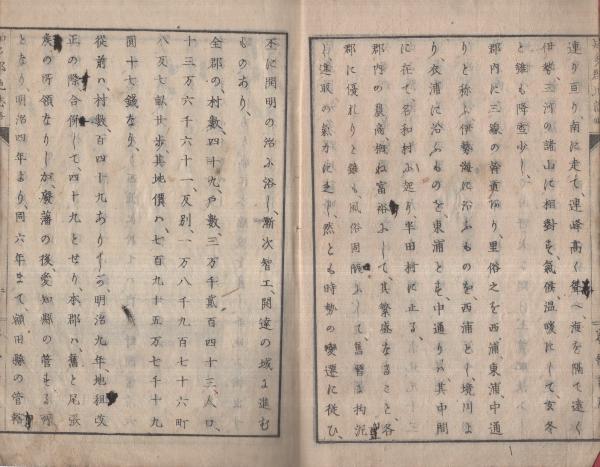 連り亘り、南に走て、連峰高く聳へ、海を隔て遠く
伊勢、三河の諸山に相對す、氣候温暖にして、玄冬
と雖も降雪少し、
郡内に三線の皆道あり、里俗之を西浦、東浦、中通
りと称ふ、伊勢海に沿ふものを、西浦とし、境川よ
り、衣浦に沿ふものを、東浦とす、中通りハ、其中間
に在て、名和村ニ起り、半田村に止る、
郡内の農商、概ね富裕ふして、其繁盛なること、各
郡に優れりと雖も、風俗固陋ふして、舊習に拘泥
し、進取の氣力に乏し、然とも時勢の變遷に従ひ、
丕に開明の治ふ浴し、漸次智工、開達の域に進む
ものあり、
全郡の、村數四十九、戸數三万千貳百四十三、人口、
十三万六千六十一、反別、一万八千九百七十六町
八反七畝廿歩、其地價ハ、七百九十五万七千十九
圓十七錢なり、
從前ハ、村數百四十九ありしニ、明治九年、地租改
正の際合併して、四十九とせり、本郡ハ、舊と尾張
矦の所領なりしが、廢藩の後、愛知縣の管する所
となり、明治四年より、同六年まて額田縣の管轄